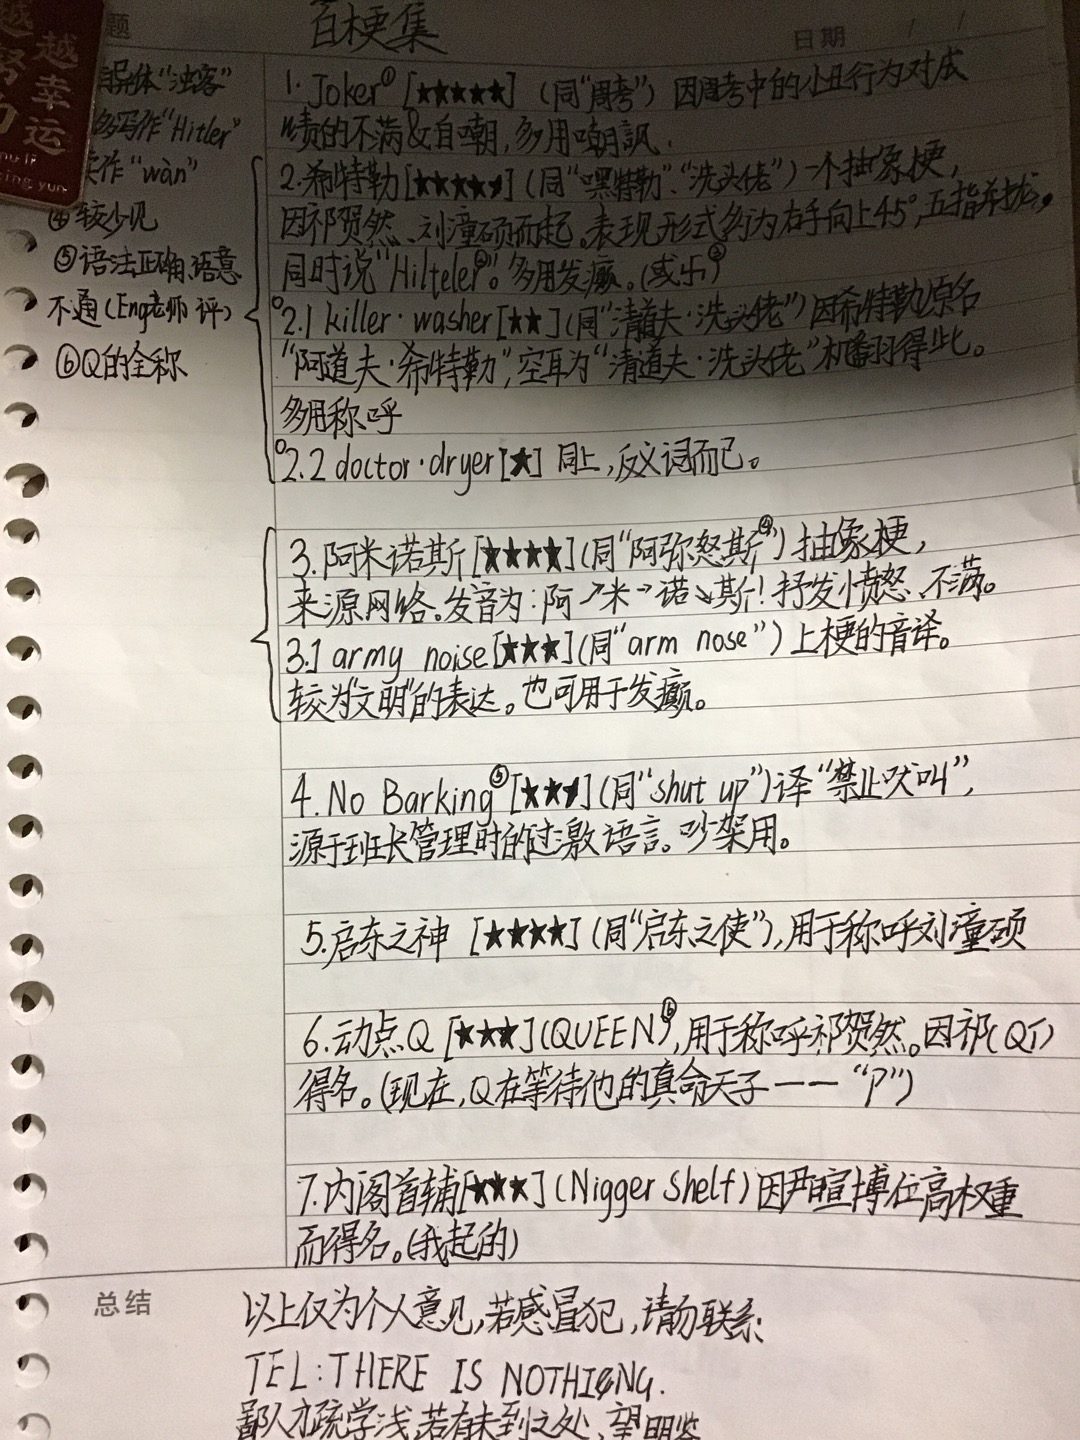 越努力
越幸运
题
百梗集
日期
异体“浊客”
多写作“Hitler”
读作“wàn”
④较少见
⑤语法正确,语意
不通(Eng老师 评)
⑥Q的全称
1. Joker①[★★★★★](同“周考”)因周考中的小丑行为对成
绩的不满&自嘲,多用嘲讽.
2.希特勒[★★★★★](同“嘿特勒”、“洗头佬”)一个抽象梗,
因祁贺然、刘潼硕而起。表现形式多为右手向上45°,五指并拢,
同时说“Hilteler②”。多用发癫。(或卐③)
2.1 killer·washer[★★](同“清道夫·洗头佬”)因希特勒原名
“阿道夫·希特勒”,空耳为“清道夫·洗头佬”机翻得此。
多用称呼
2.2 doctor·dryer[★] 同上,反义词而已。
3.阿米诺斯[★★★★](同“阿弥怒斯④”)抽象梗,
来源网络。发音为:阿↗米→诺↘斯!抒发愤怒、不满。
3.1 army noise[★★★](同“arm nose”)上梗的音译。
较为“文明”的表达。也可用于发癫。
4.No Barking⑤[★★★](同“shut up”)译“禁止吠叫”,
源于班长管理时的过激语言。吵架用。
5.启东之神 [★★★★](同“启东之使”),用于称呼刘潼硕
6.动点Q [★★★](QUEEN⑥),用于称呼祁贺然。因祁(QI)
得名。(现在,Q在等待他的真命天子——“P”)
7.内阁首辅[★★★](Nigger Shelf)因尹暄博位高权重
而得名。(我起的)
总结
以上仅为个人意见,若感冒犯,请勿联系:
TEL:THERE IS NOTHING.
鄙人才疏学浅,若有未到之处,望明鉴